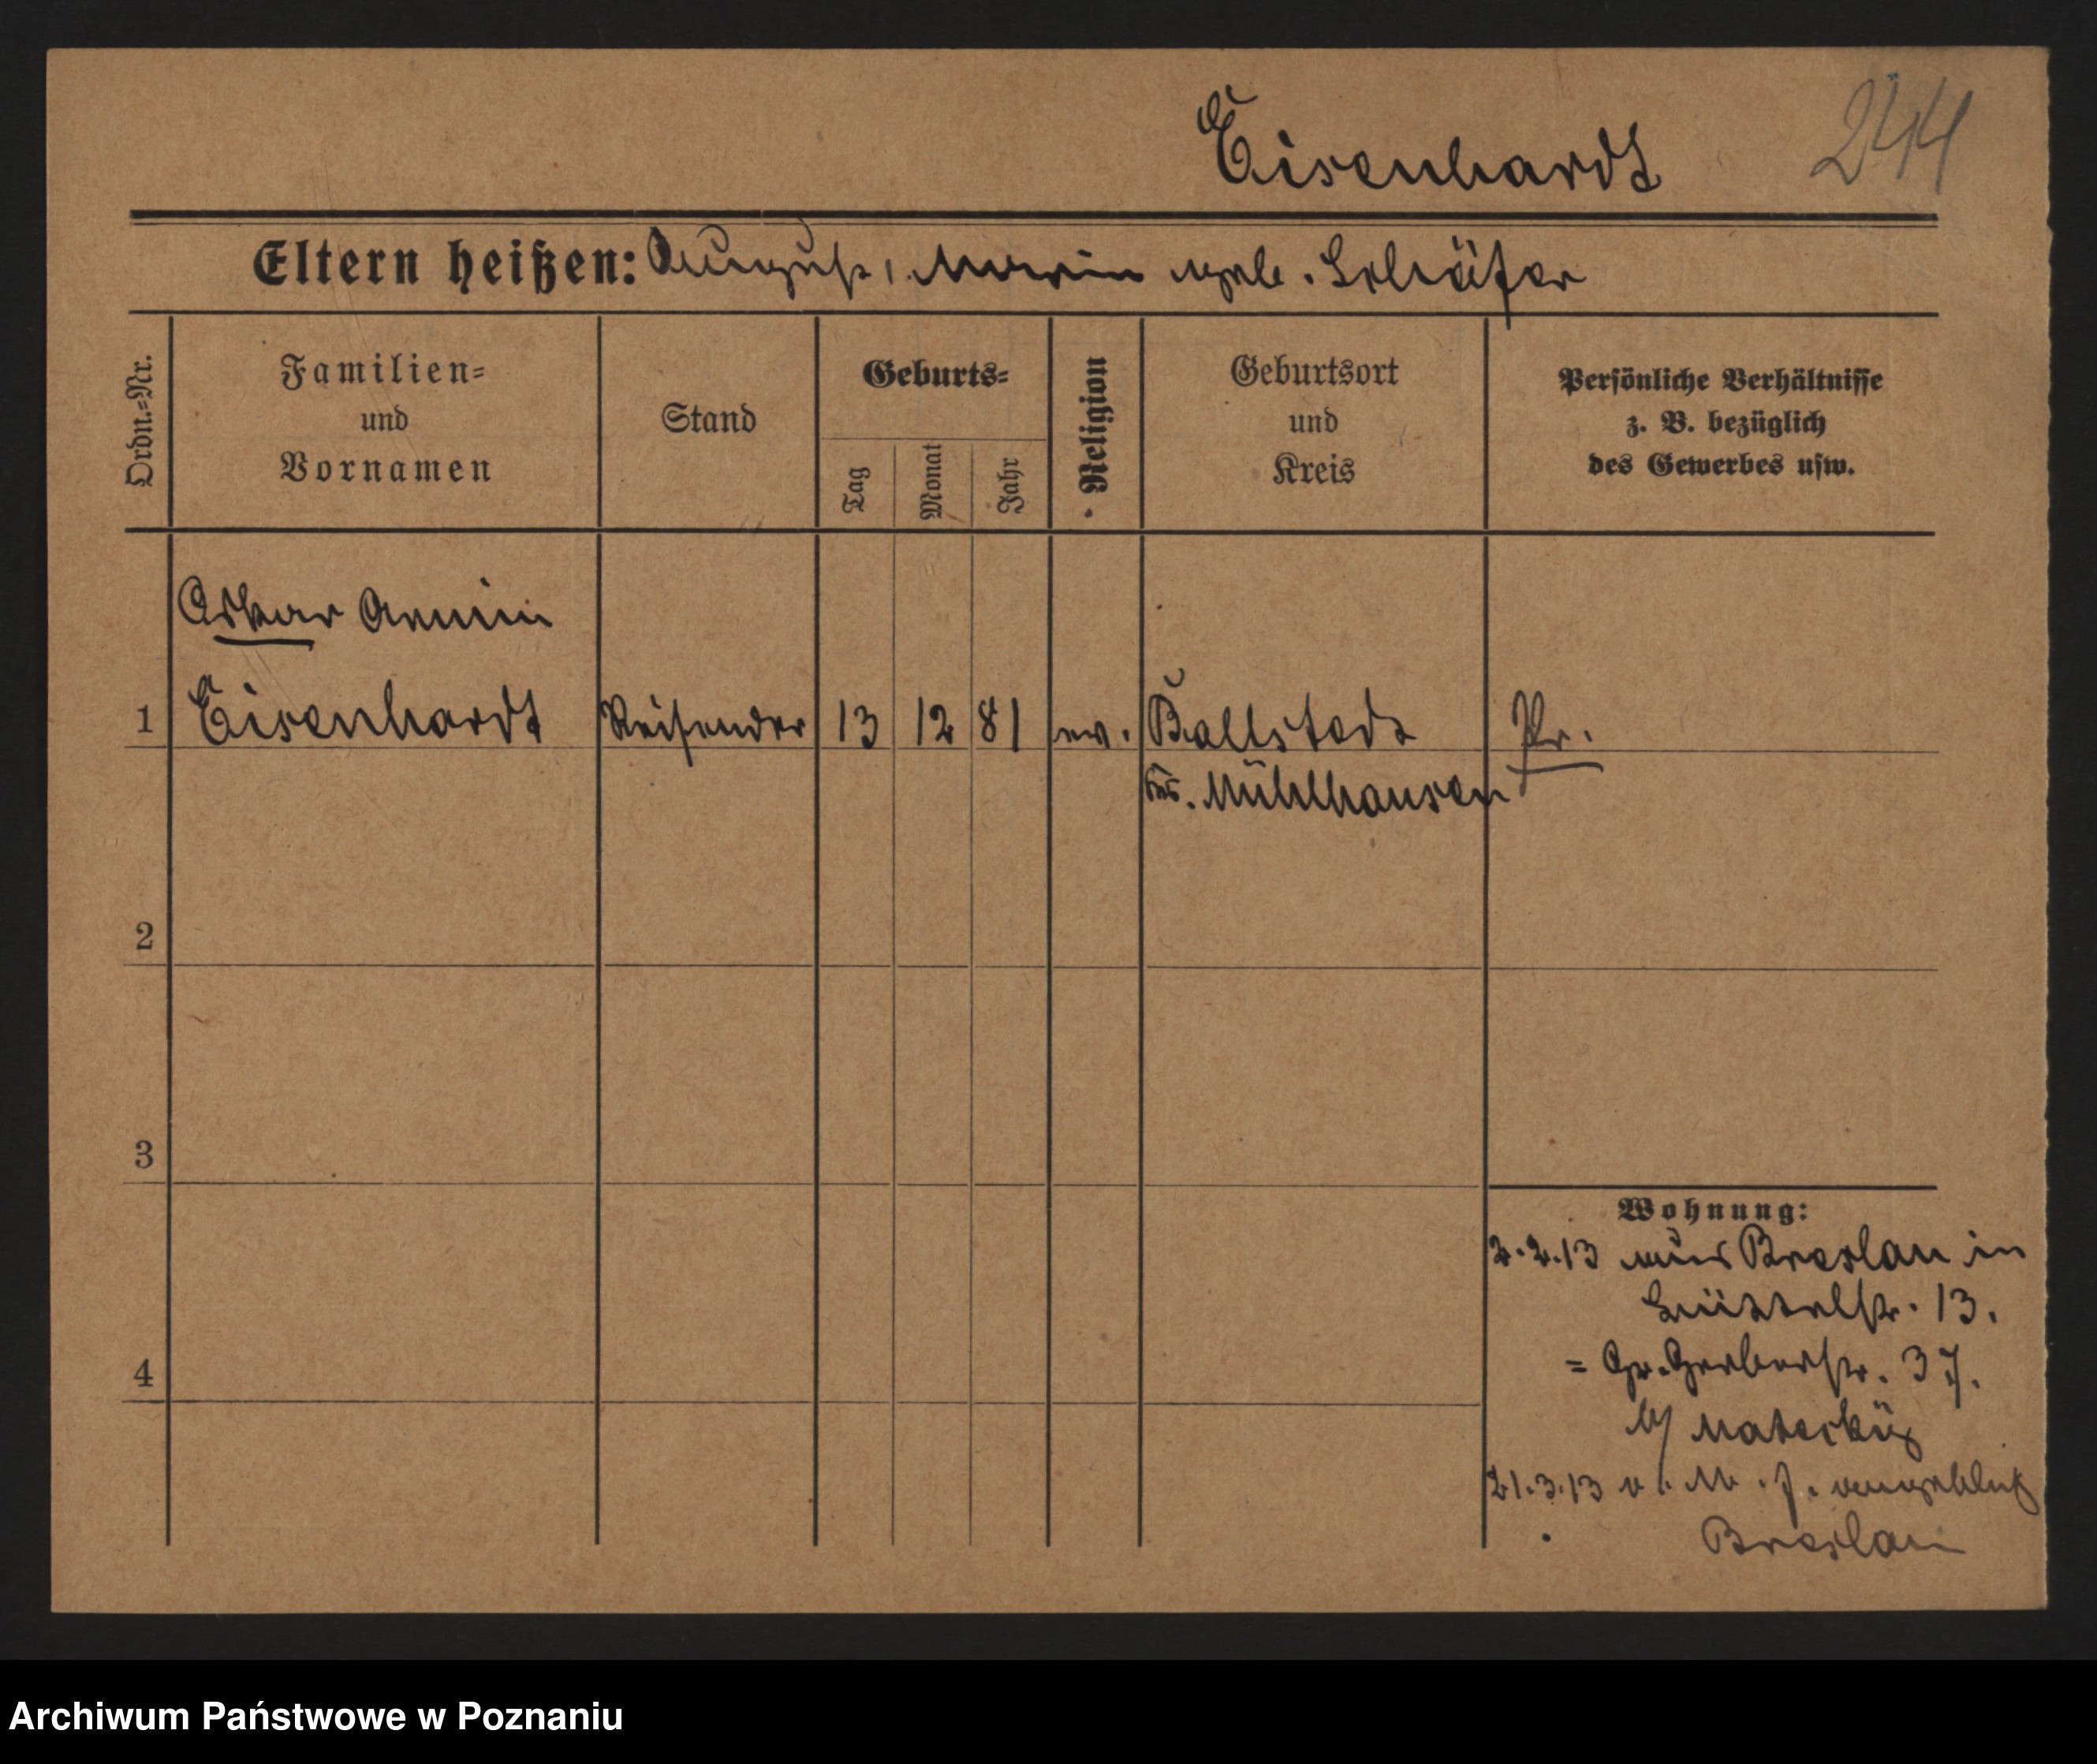 Eisenhardt
244
Eltern heißen: August, Marie geb. Schäfer
Ordn.=Nr.
Familien=
und
Vornamen
Stand
Geburts=
Tag
Monat
Jahr
Religion
Geburtsort
und
Kreis
Persönliche Verhältnisse
z. B. bezüglich
des Gewerbes usw.
Oskar Armin
1 Eisenhardt Reisender 13 12 81 ev. Ballstadt Pr.
Krs. Mühlhausen
2
3
4
Wohnung:
2.2.13 aus Breslau in
13.
= Gr. Gerberstr. 37.
b/
21.3.13 v. M. angeblich
Breslau
Archiwum Państwowe w Poznaniu